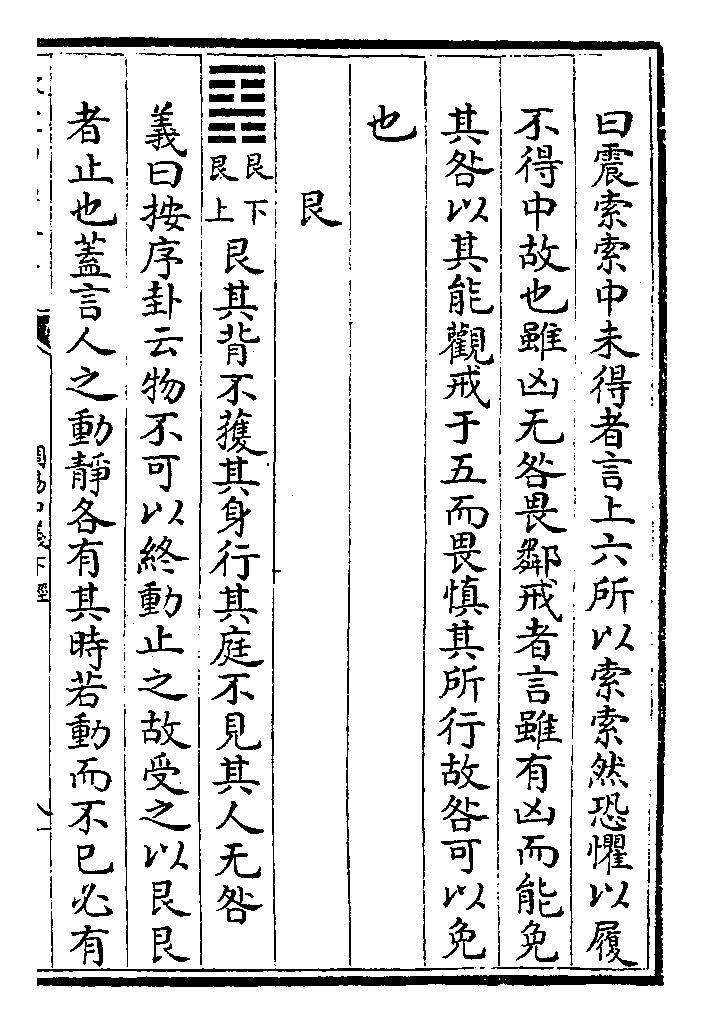 曰震索索中未得者言上六所以索索然恐懼以履
不得中故也雖凶无咎畏鄰戒者言雖有凶而能免
其咎以其能觀戒于五而畏慎其所行故咎可以免
也
艮
䷳艮下艮上艮其背不獲其身行其庭不見其人无咎
義曰按序卦云物不可以終動止之故受之以艮艮
者止也蓋言人之動靜各有其時若動而不已必有